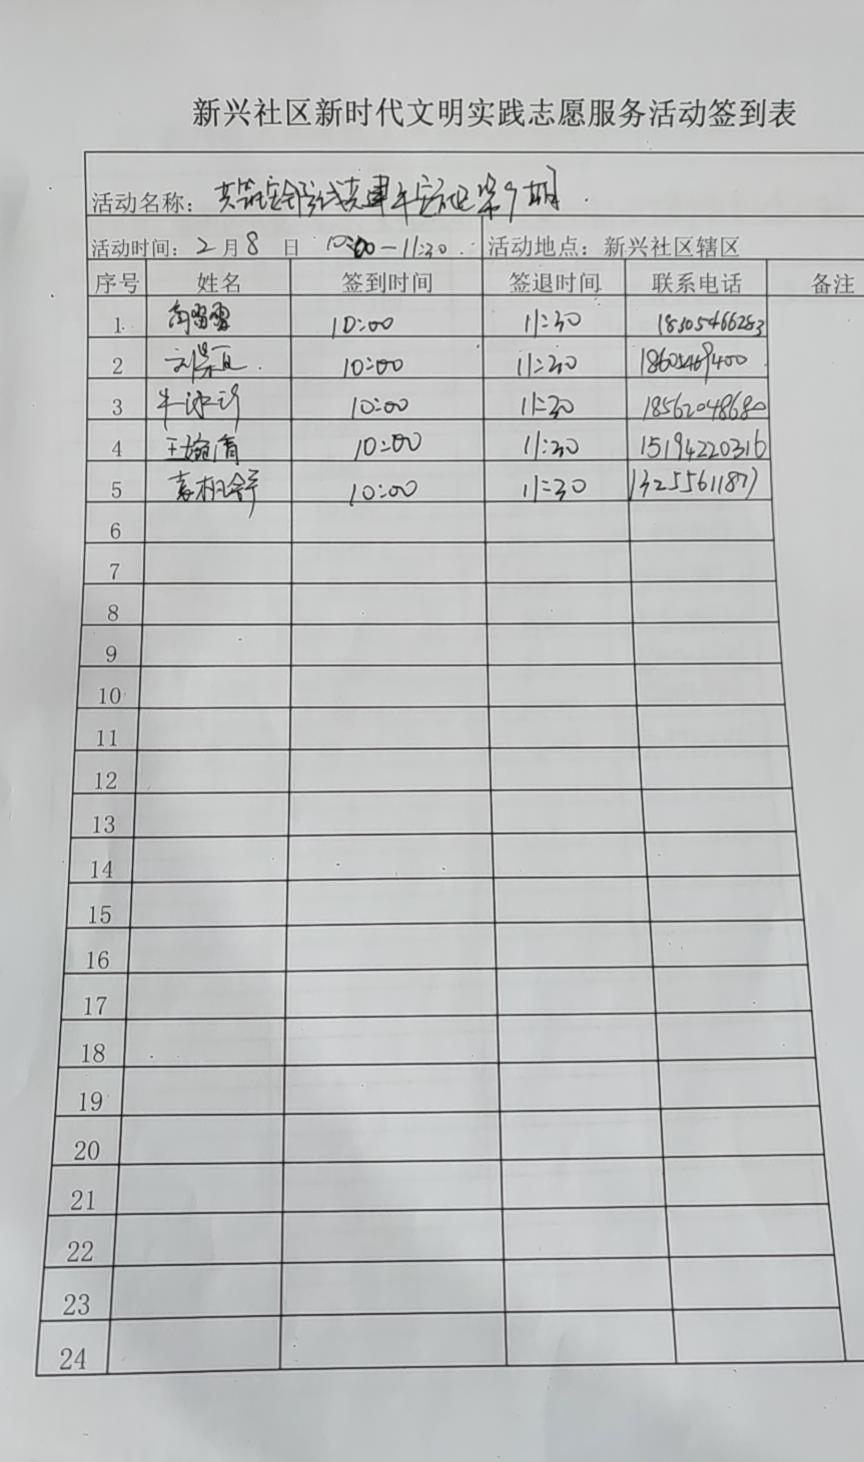 新兴社区新时代文明实践志愿服务活动签到表
活动名称：共筑安全防线共建平安
活动时间：2月8日 10:00-11:30. 活动地点：新兴社区辖区
序号 姓名 签到时间 签退时间 联系电话 备注
1 10:00 11:30 18305466283
2 10:00 11:30 18605469400
3 牛冰 10:00 11:30 18562048680
4 王婉清 10:00 11:30 15194220316
5 袁 10:00 11:30 13255611877
6
7
8
9
10
11
12
13
14
15
16
17
18
19
20
21
22
23
24